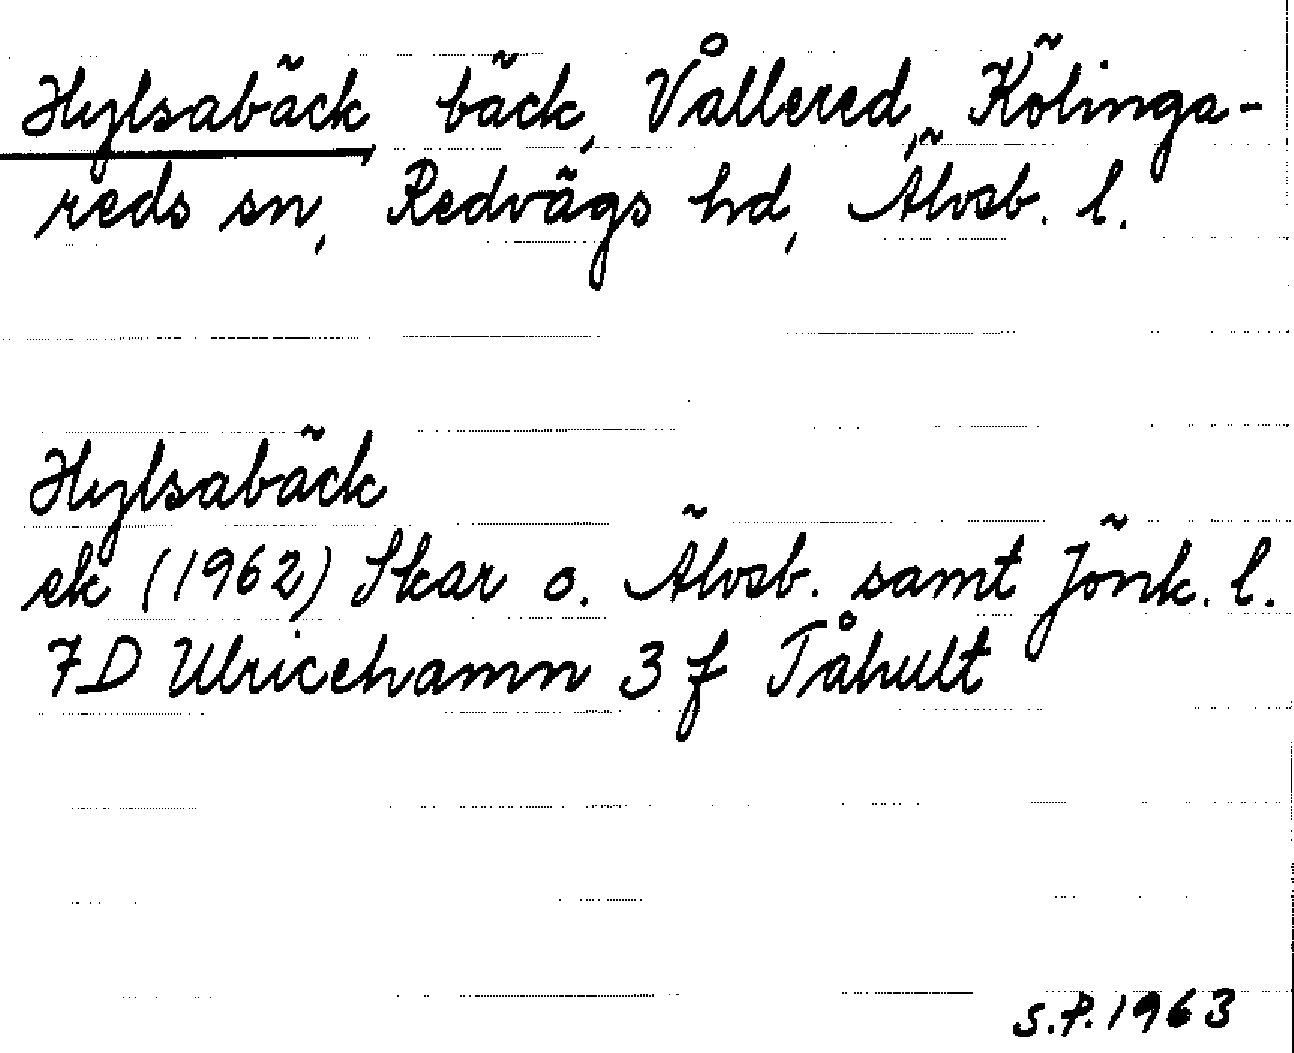 Hylsabäck, bäck, Vållered, Kölinga-
reds sn, Redvägs hd, Älvsb. l.
Hylsabäck
ek (1962) Skar o. Älvsb. samt Jönk. l.
7D Ulricehamn 3 f Tåhult
S.P. 1963